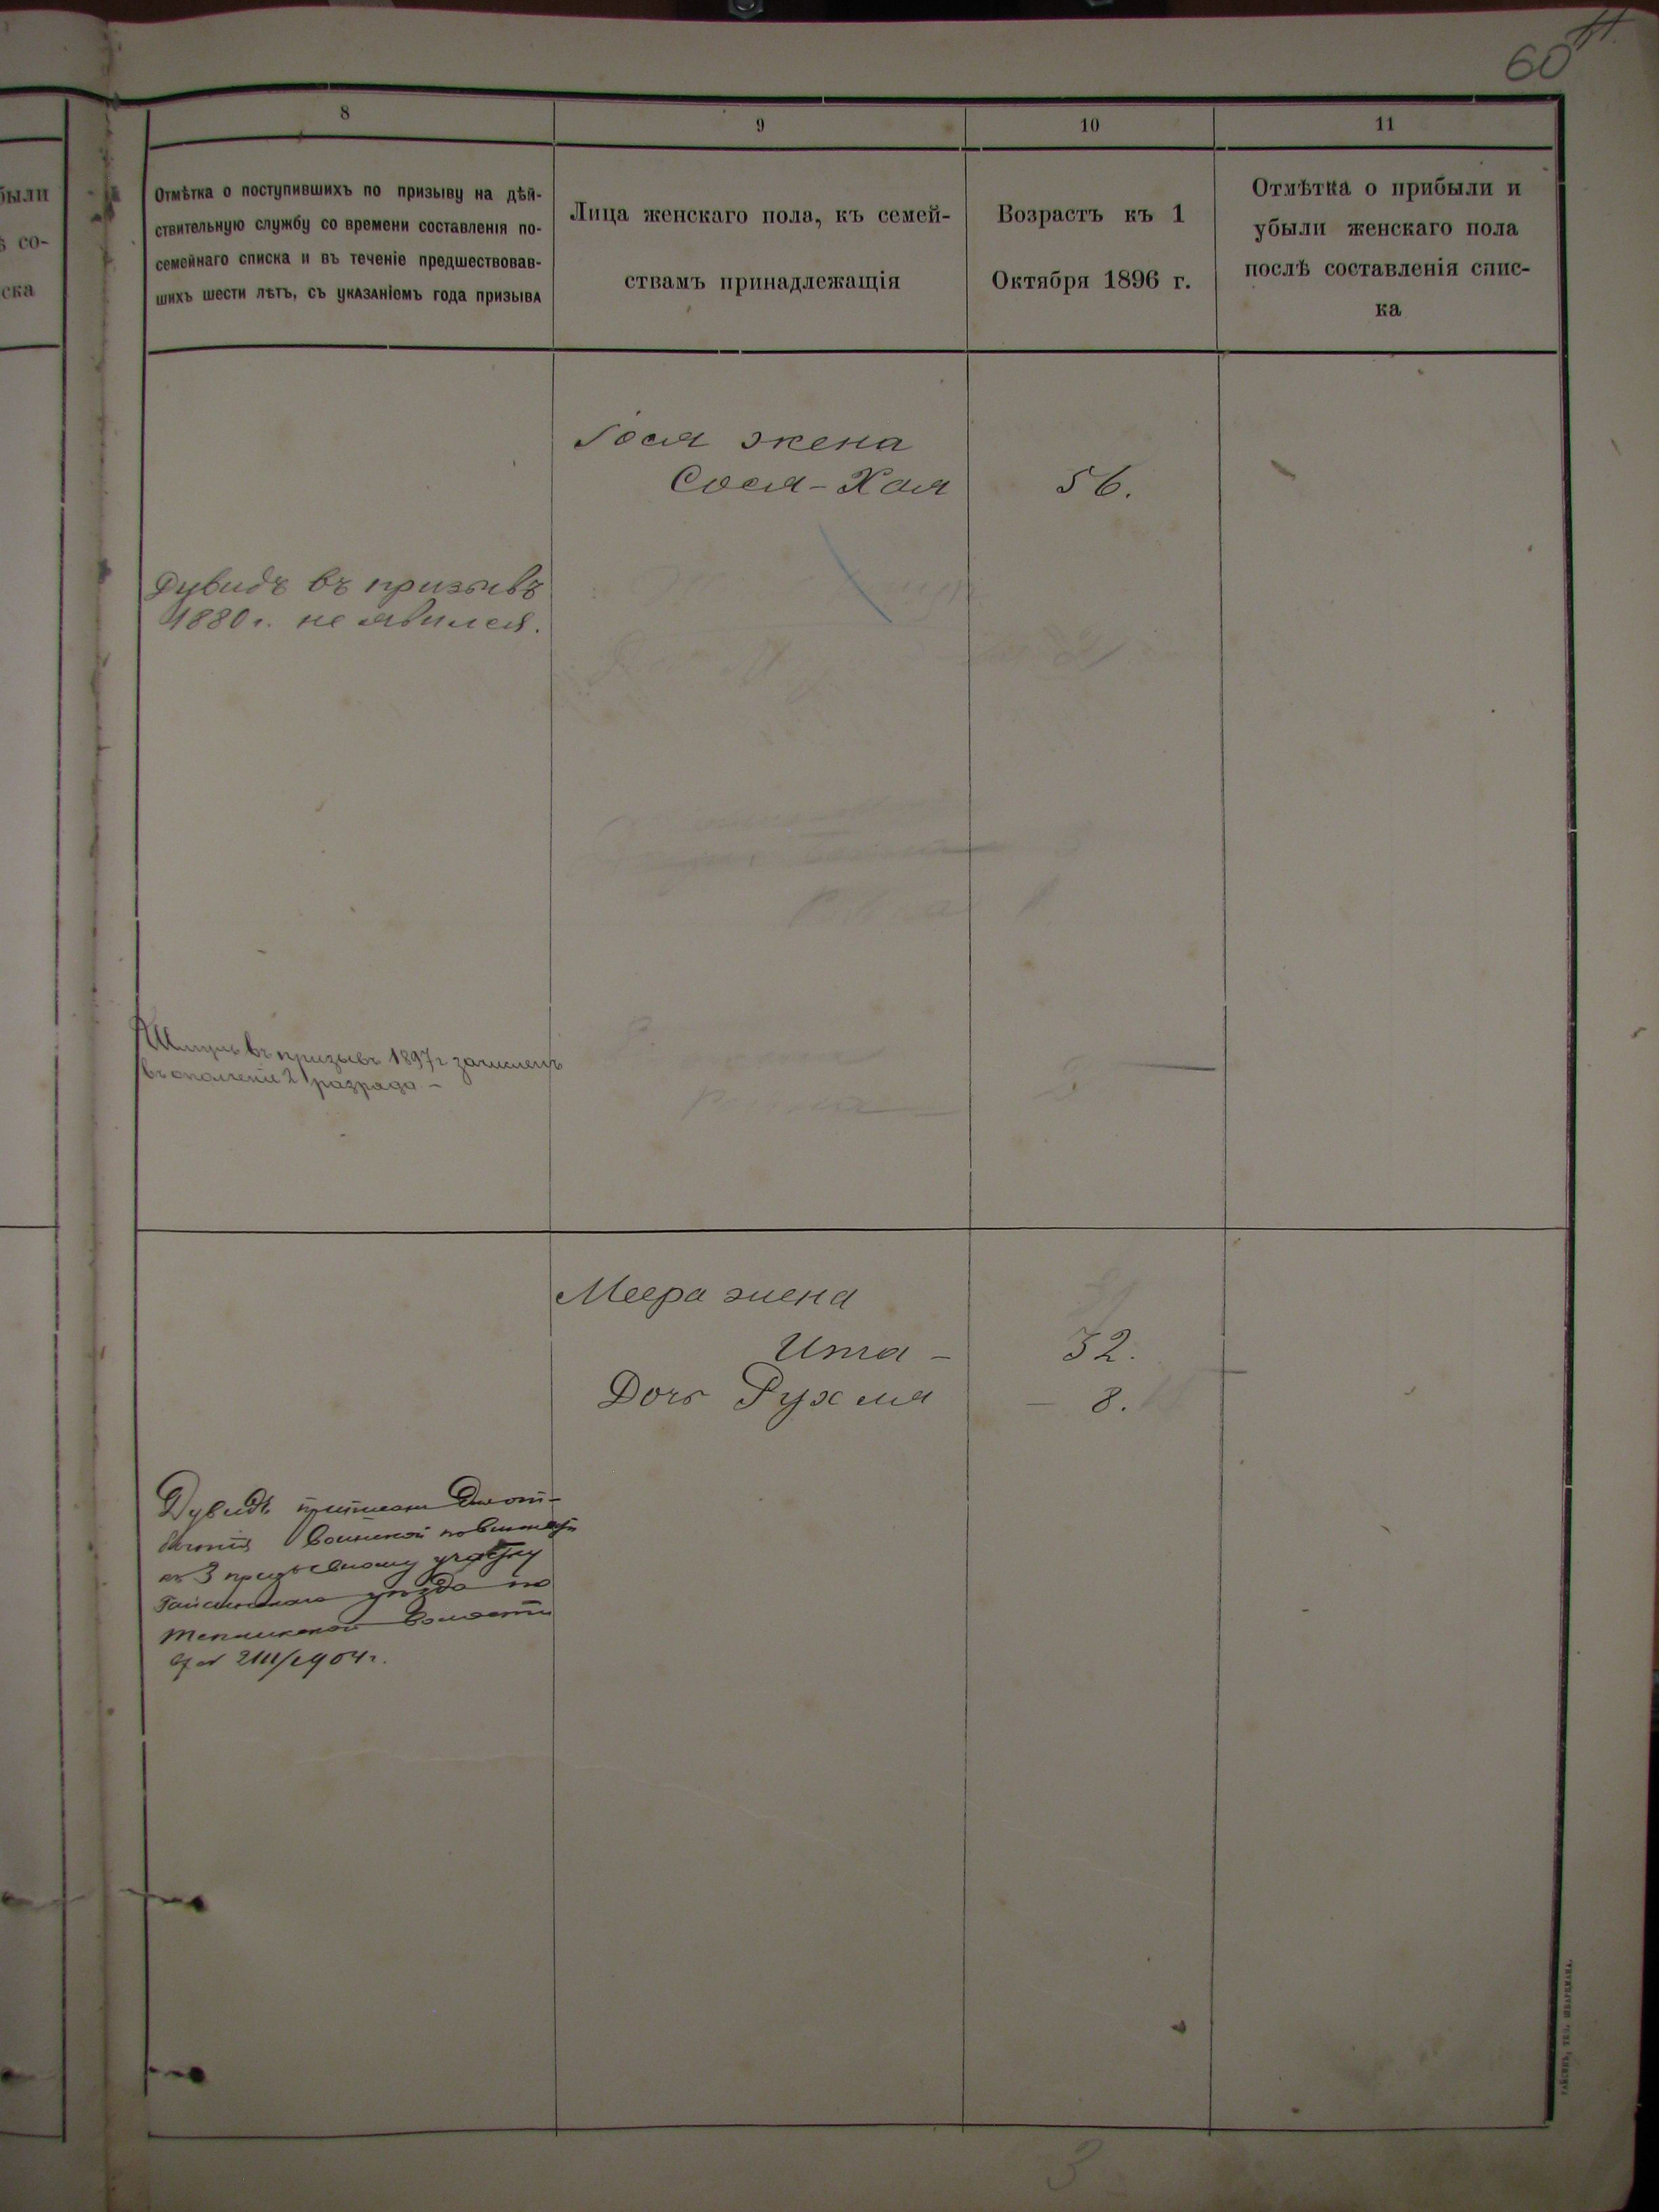 60
8
9
10
11
были
со-
ска
Отмѣтка о поступившихъ по призыву на дѣй-
ствительную службу со времени составленія по-
семейнаго списка и въ теченіе предшествовав-
шихъ шести лѣтъ, съ указаніемъ года призыва
Лица женскаго пола, къ семей-
ствамъ принадлежащія
Возрастъ къ 1
Октября 1896 г.
Отмѣтка о прибыли и
убыли женскаго пола
послѣ составленія спис-
ка
жена
Сося-Хая
56.
Дувидъ въ призывъ
1880 г. не явился.
Шмуль въ призывъ 1897 г зачисленъ
въ ополченіе 2 разряда -
Меера жена
Ита -
32.
Дочь Рухля
- 8.
Дувидъ приписанъ
воинской
къ 3 призывному участку
Гайсинскаго уѣзда по
волости
1904 г.
3